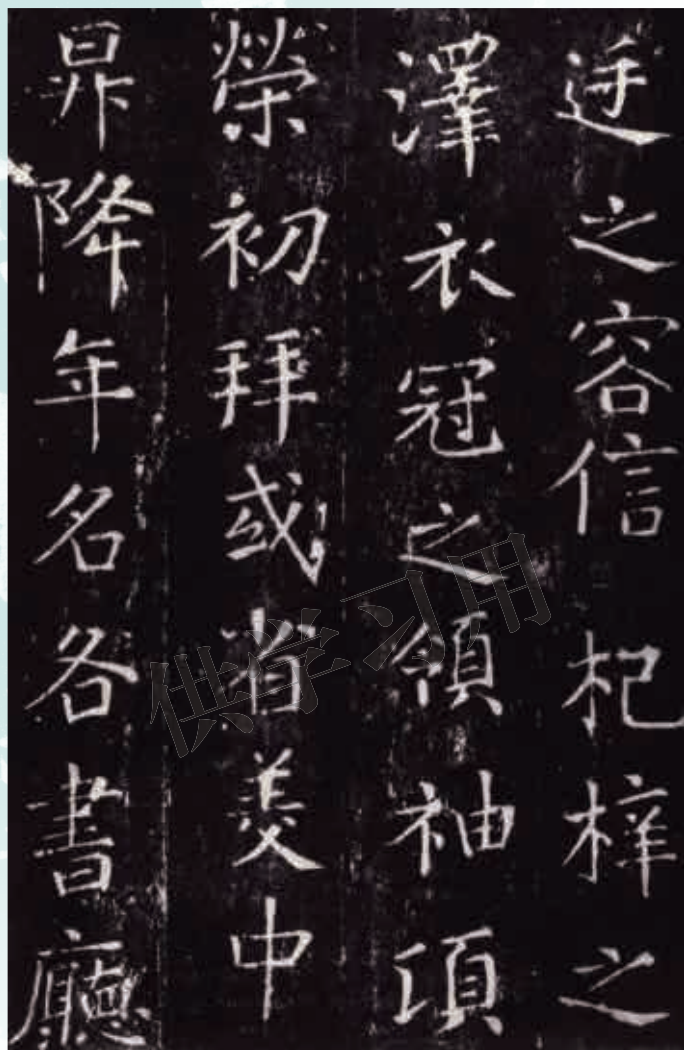 廷之容信杞梓之
澤衣冠之領袖頃
榮初拜或省美中
昇降年名各書廳
供学习用